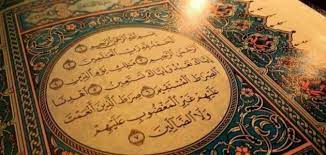 بِسْمِ اللَّهِ الرَّحْمَٰنِ الرَّحِيمِ ۝
الْحَمْدُ لِلَّهِ رَبِّ الْعَالَمِينَ ۝
الرَّحْمَٰنِ الرَّحِيمِ ۝ مَالِكِ يَوْمِ الدِّينِ ۝
إِيَّاكَ نَعْبُدُ وَإِيَّاكَ نَسْتَعِينُ ۝ اهْدِنَا
الصِّرَاطَ الْمُسْتَقِيمَ ۝ صِرَاطَ الَّذِينَ أَنْعَمْتَ
عَلَيْهِمْ غَيْرِ الْمَغْضُوبِ عَلَيْهِمْ
وَلَا الضَّالِّينَ ۝